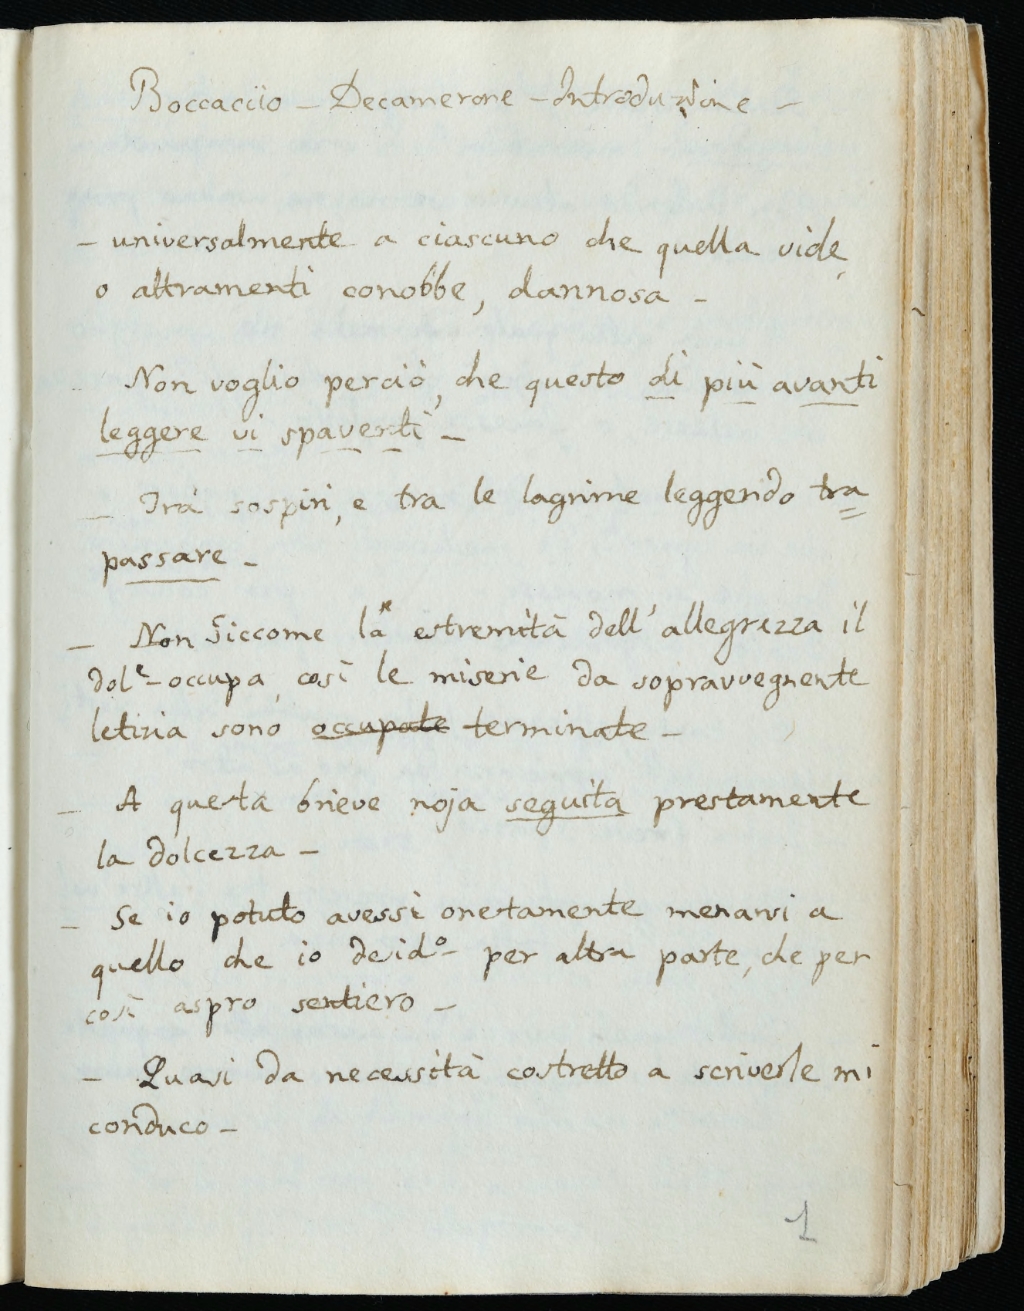 Boccaccio – Decamerone – Introduzione –
– universalmente a ciascuno che quella vide
o altramenti conobbe, dannosa –
Non voglio perciò, che questo di più avanti
leggere vi spaventi –
– Trà sospiri, e tra le lagrime leggendo tra
passare –
– Non Siccome la* estremità dell'allegrezza il
dolᵉ– occupa, così le miserie da sopravvegnente
letizia sono occupate terminate –
– A questa brieve noja seguita prestamente
la dolcezza –
– Se io potuto avessi onestamente menarvi a
quello che io desidᵒ– per altra parte, che per
così aspro sentiero –
– Quasi da necessità costretto a scriverle mi
conduco –
1